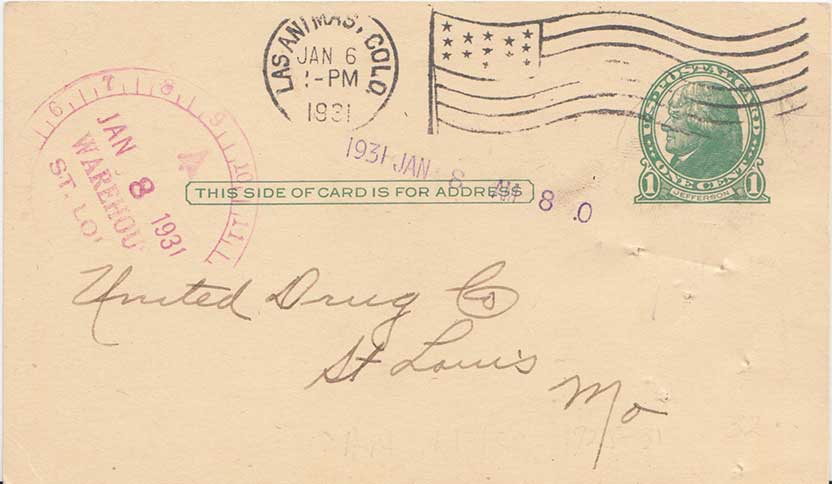 LAS ANIMAS, COLO.
JAN 6
-PM
1931
U.S. POSTAL CARD
ONE CENT
1 JEFFERSON 1
6 7 8 9 10 11
JAN 8 1931
WAREHOU
ST. LO
1931 JAN 8 AM 8 0
THIS SIDE OF CARD IS FOR ADDRESS
United Drug Co
St Louis
Mo